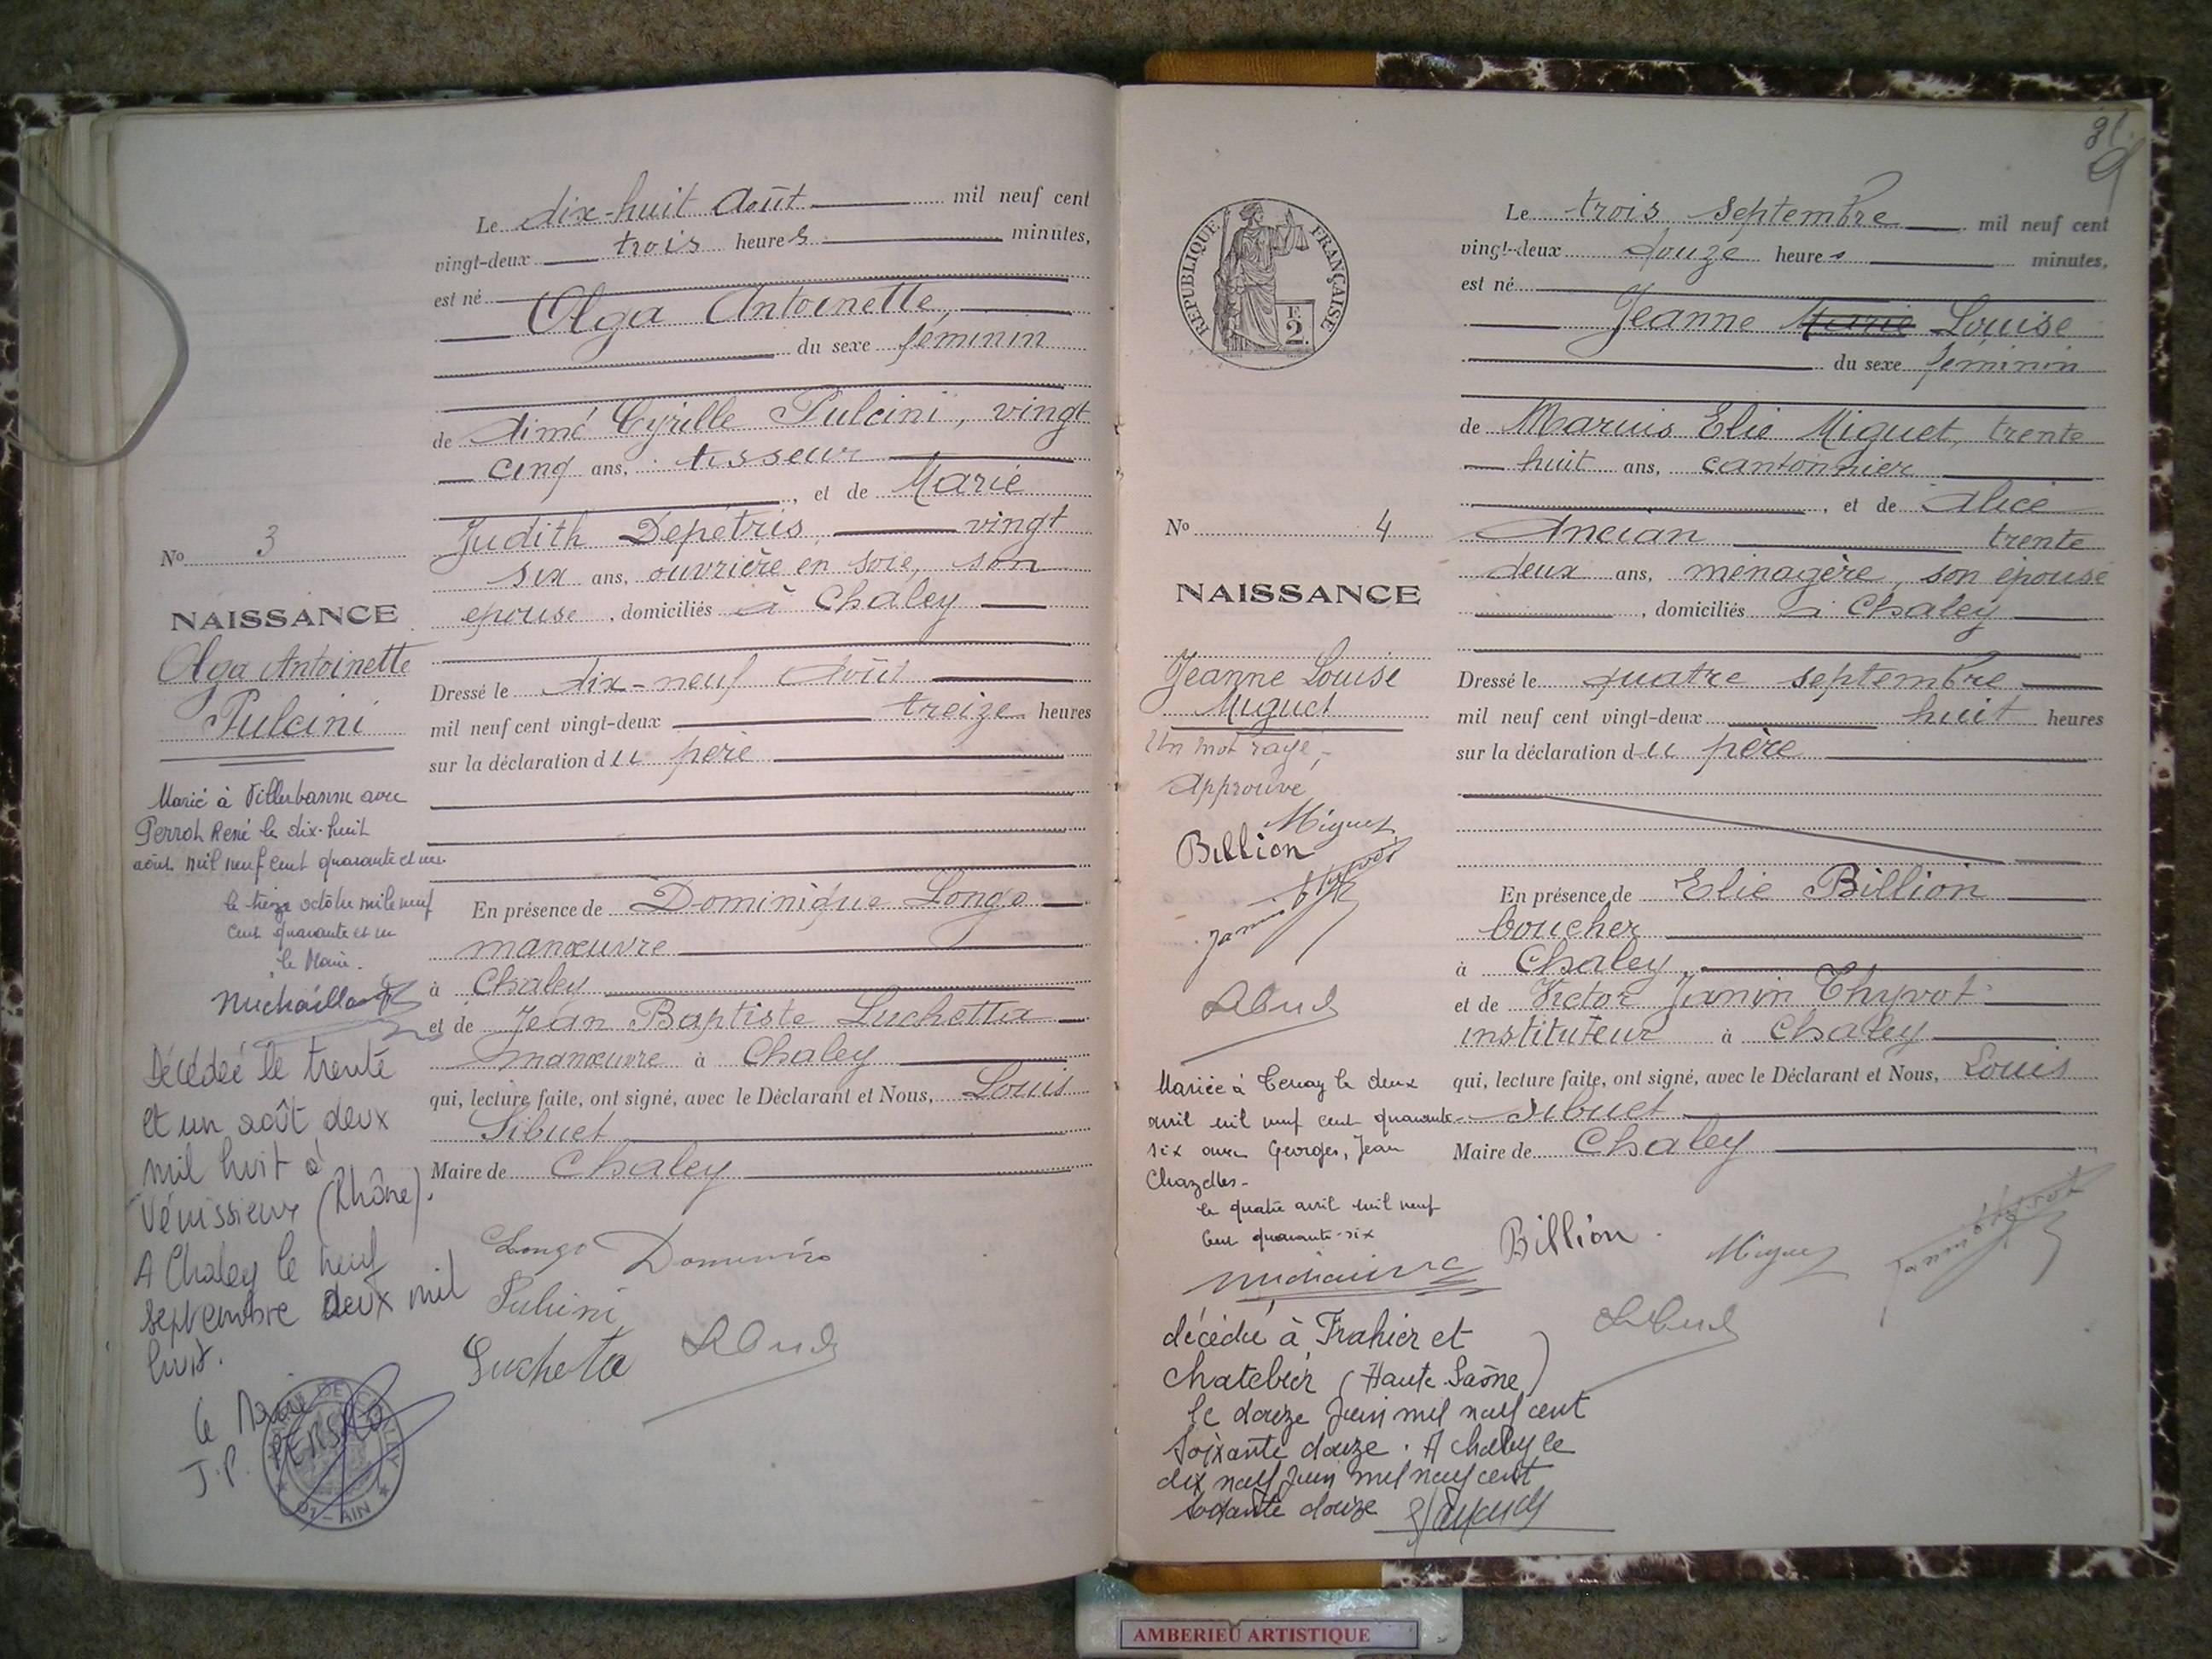 Le dix-huit Août mil neuf cent
vingt-deux trois heures minutes,
est né
Olga Antoinette
du sexe féminin
de Aimé Cyrille Pulcini, vingt
cinq ans, tisseur
, et de Marie
Judith Depétris, vingt
six ans, ouvrière en soie, son
épouse, domiciliés à Chaley
Dressé le dix-neuf Août
mil neuf cent vingt-deux treize heures
sur la déclaration du père
En présence de Dominique Longo
manœuvre
à Chaley
et de Jean Baptiste Luchetta
manœuvre à Chaley
qui, lecture faite, ont signé, avec le Déclarant et Nous, Louis
Sibuet
Maire de Chaley
Longo
Pulcini
Lucheta
No 3
NAISSANCE
Olga Antoinette
Pulcini
Marié à Villeurbanne avec
Perrot René le dix-huit
août mil neuf cent quarante et un
le treize octobre mil neuf
cent quarante et un
le Maire.
Décédée le trente
et un août deux
mil huit à
Vénissieux (Rhône).
A Chaley le neuf
septembre deux mil
huit.
Le Maire
J.P. PERSICO
01 - AIN
31
Le trois septembre mil neuf cent
vingt-deux douze heures minutes,
est né
Jeanne Marie Louise
du sexe féminin
de Marius Elie Miguet, trente
huit ans, cantonnier
, et de Alice
Ancian trente
deux ans, ménagère, son épouse
, domiciliés à Chaley
Dressé le quatre septembre
mil neuf cent vingt-deux huit heures
sur la déclaration du père
En présence de Elie Billion
boucher
à Chaley,
et de Victor Janin Thyvot
instituteur à Chaley
qui, lecture faite, ont signé, avec le Déclarant et Nous, Louis
Sibuet
Maire de Chaley
Billion Miguet Janin Thyvot
REPUBLIQUE FRANÇAISE
2
No 4
NAISSANCE
Jeanne Louise
Miguet
Un mot rayé,
Approuvé
Miguet
Billion
Janin Thyvot
Mariée à Tenay le deux
avril mil neuf cent quarante
six avec Georges, Jean
Chazelles-
le quatre avril mil neuf
cent quarante-six
décédée à Frahier et
Chatebier (Haute Saône)
le douze Juin mil neuf cent
soixante douze. A chaley le
dix neuf Juin mil neuf cent
soixante douze
AMBERIEU ARTISTIQUE